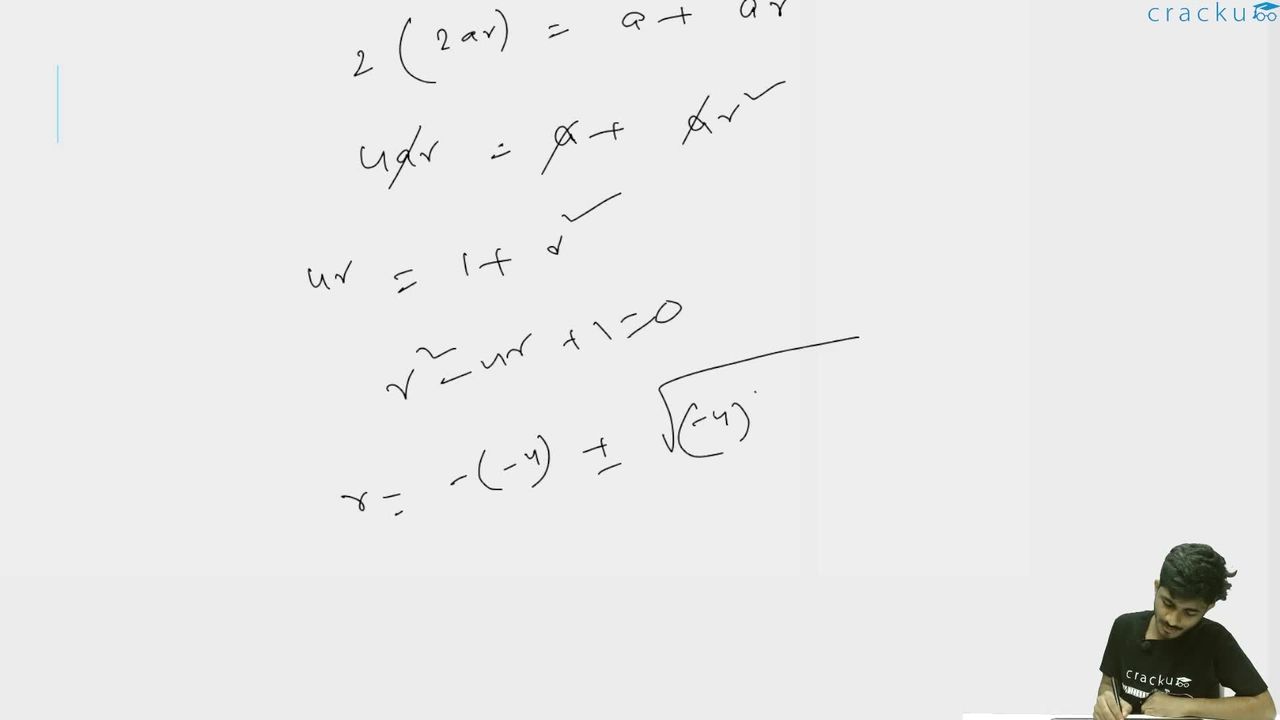 cracku
2 (2ar) = a + ar
4ar = a + ar²
4r = 1 + r²
r² - 4r + 1 = 0
r = -(-4) ± √(-4)
cracku